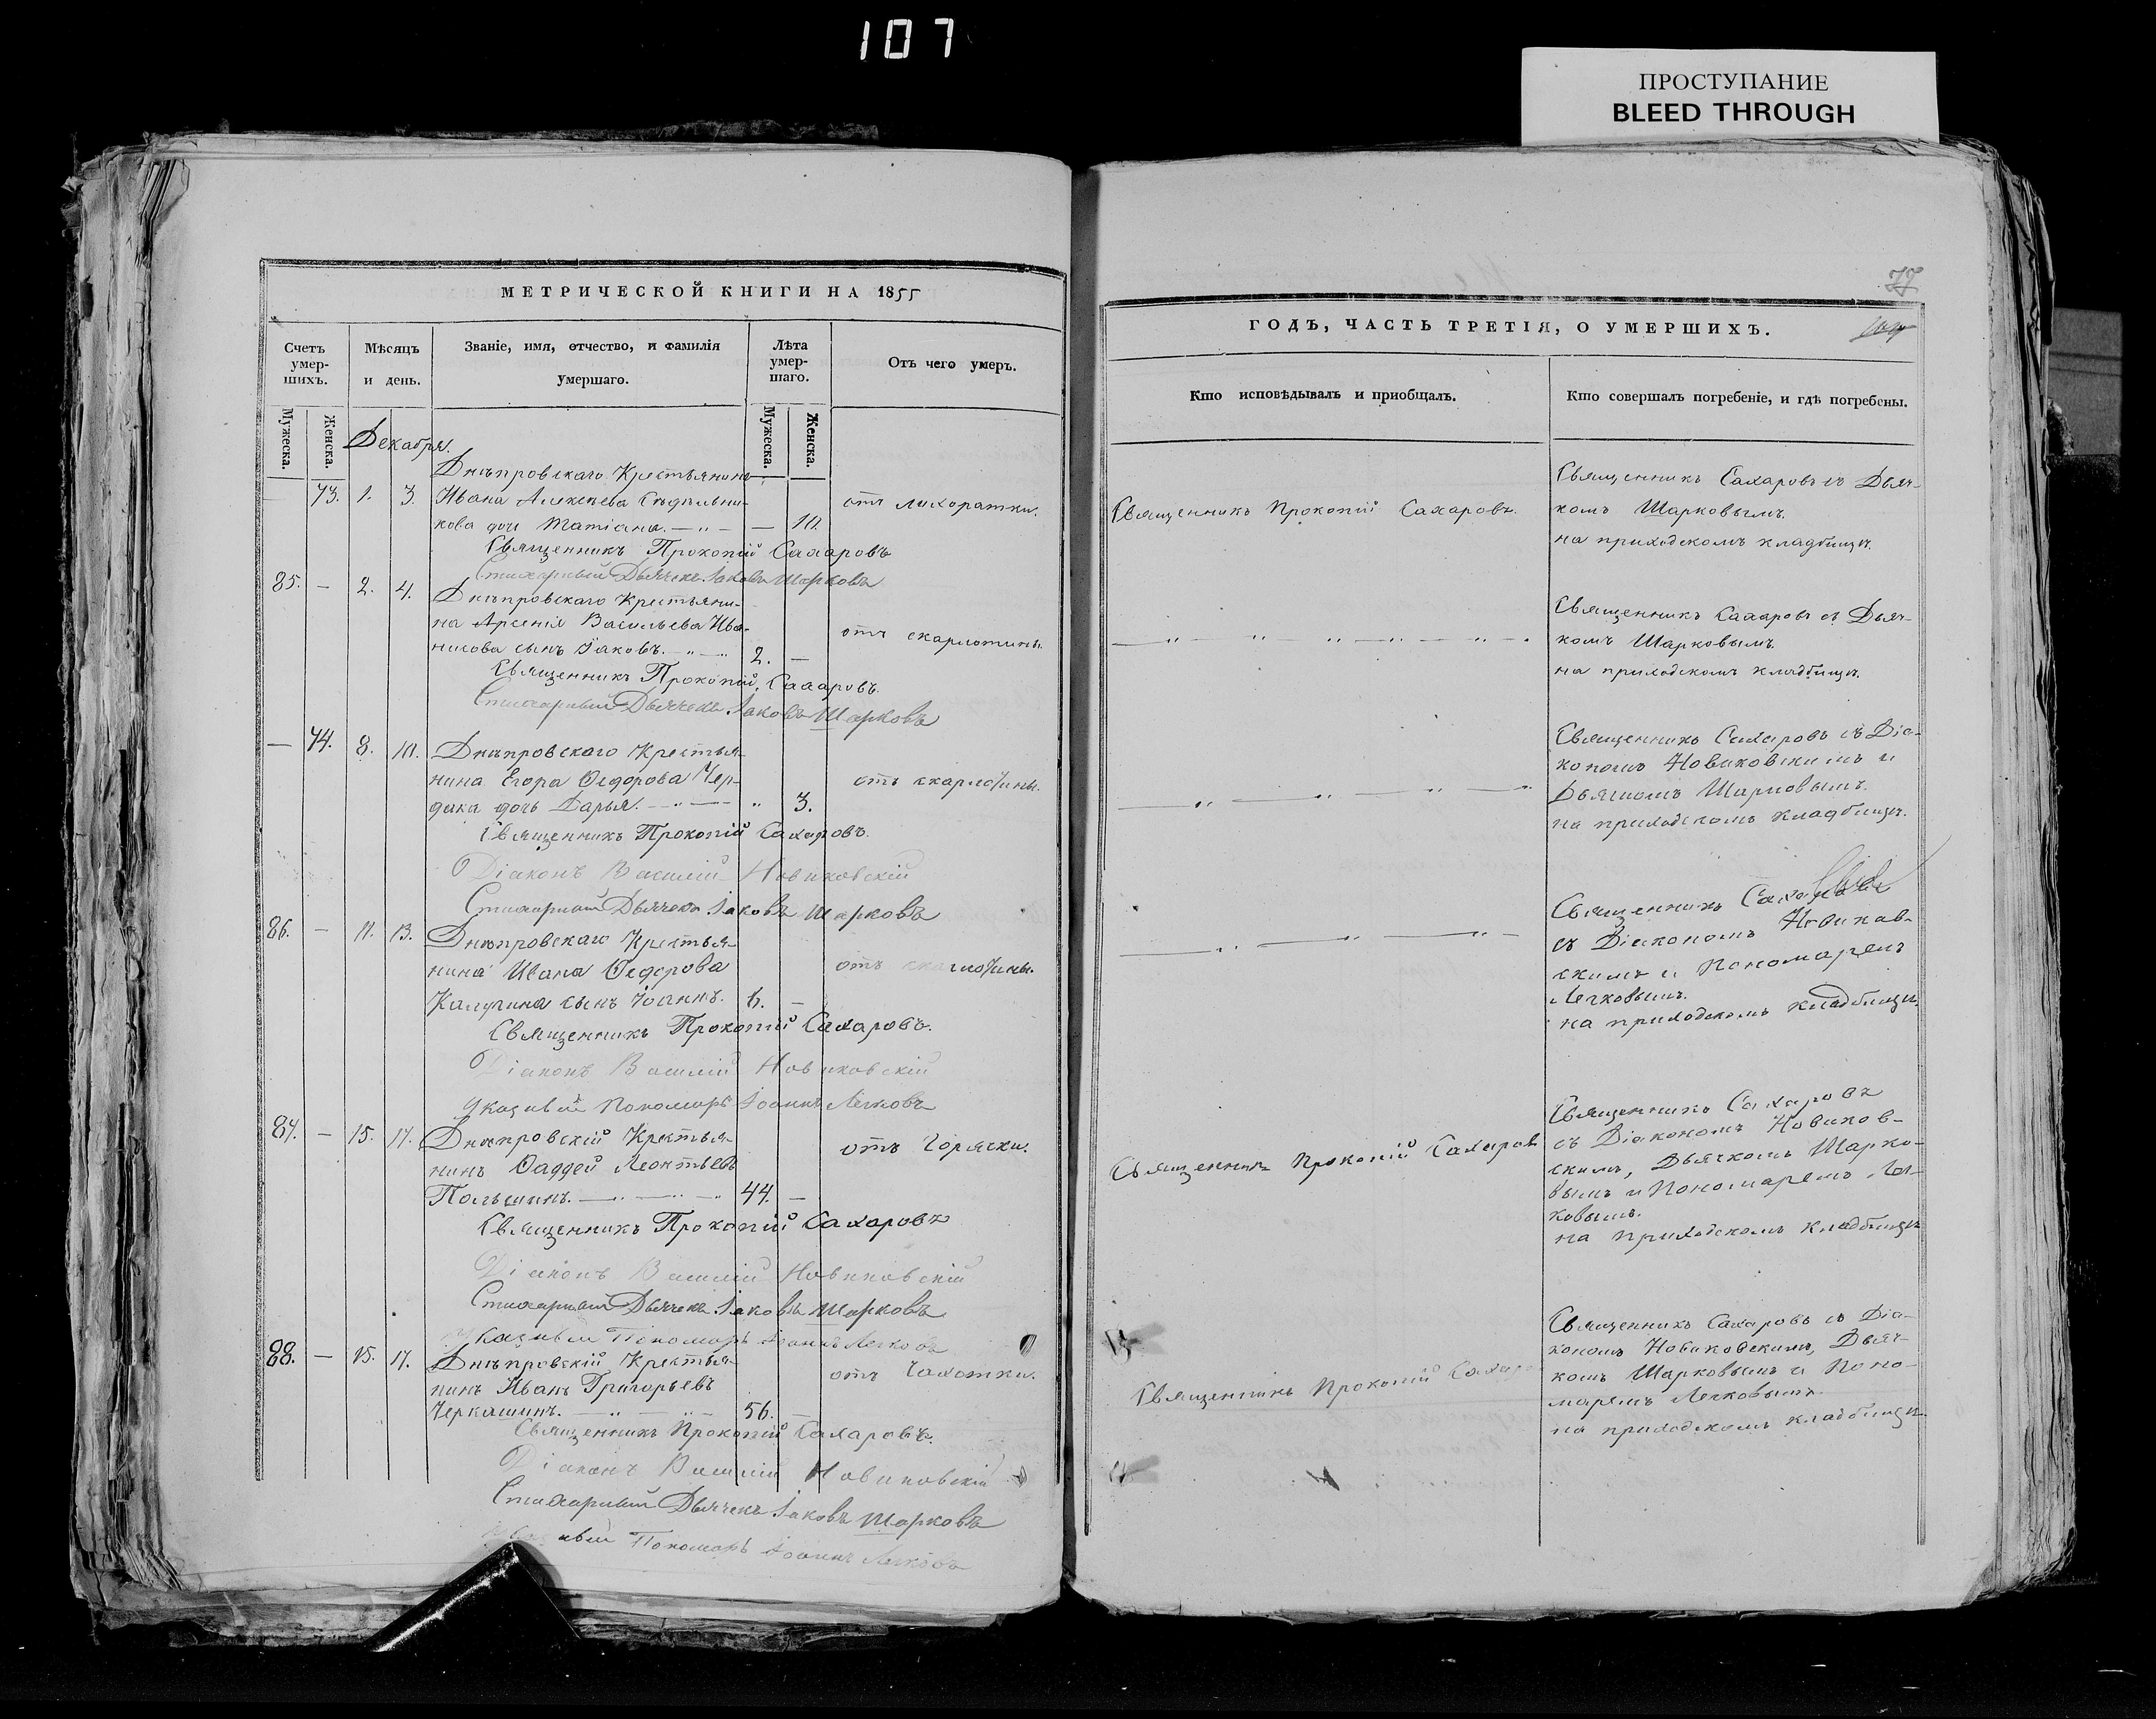 107
ПРОСТУПАНИЕ
BLEED THROUGH
МЕТРИЧЕСКОЙ КНИГИ НА 1855
Счетъ умер-шихъ.
Мѣсяцъ и день.
Званіе, имя, отчество, и фамилія умершаго.
Лѣта умер-шаго.
Отъ чего умеръ.
Мужеска.
Женска.
Мужеска.
Женска.
Декабря.
Днѣпровскаго Крестьянина
73. 1. 3. Ивана Алексѣева
кова дочь Татіана. — 10. отъ лихоратки.
Священникъ Прокопій Сахаровъ
Стихарный Дьячекъ Іаковъ Шарковъ
85. — 2. 4. Днѣпровскаго Крестьяни-
на Арсенія Васильева Ива-
никова сынъ Іаковъ. 2. — отъ скарлотины.
Священникъ Прокопій Сахаровъ.
Стихарный Дьячекъ Іаковъ Шарковъ
— 74. 8. 10. Днѣпровскаго Крестья-
нина Егора Ѳедорова Чер-
дака дочь Дарья. 3. отъ скарлотины.
Священникъ Прокопій Сахаровъ.
Діаконъ Василій Новиковскій
Стихарный Дьячекъ Іаковъ Шарковъ
86. — 11. 13. Днѣпровскаго Крестья-
нина Ивана Ѳедорова
сынъ Іоаннъ. 6. — отъ скарлотины.
Священникъ Прокопій Сахаровъ.
Діаконъ Василій Новиковскій
Указный Пономарь Іоаннъ Легковъ
87. — 15. 17. Днѣпровскій Крестья-
нинъ Фаддей Леонтьевъ
44. — отъ горячки.
Священникъ Прокопій Сахаровъ
Діаконъ Василій Новиковскій
Стихарный Дьячекъ Іаковъ Шарковъ
Указный Пономарь Іоаннъ Легковъ
88. — 15. 17. Днѣпровскій Крестья-
нинъ Иванъ Григорьевъ
Черкашинъ. 56. — отъ Чахотки.
Священникъ Прокопій Сахаровъ.
Діаконъ Василій Новиковскій
Стихарный Дьячекъ Іаковъ Шарковъ
Указный Пономарь Іоаннъ Легковъ
77
ГОДЪ, ЧАСТЬ ТРЕТІЯ, О УМЕРШИХЪ.
Кто исповѣдывалъ и пріобщалъ.
Кто совершалъ погребеніе, и гдѣ погребены.
Священникъ Прокопій Сахаровъ.
Священникъ Сахаровъ съ Дьяч-
комъ Шарковымъ.
на приходскомъ кладбищѣ.
Священникъ Сахаровъ съ Дьяч-
комъ Шарковымъ.
на приходскомъ кладбищѣ.
Священникъ Сахаровъ съ Діа-
кономъ Новиковскимъ и
Дьячкомъ Шарковымъ.
на приходскомъ кладбищѣ.
Священникъ Сахаровъ
съ Діакономъ Новиков-
скимъ и Пономаремъ
Легковымъ.
на приходскомъ кладбищѣ
Священникъ Прокопій Сахаровъ
Священникъ Сахаровъ
съ Діакономъ Новиков-
скимъ, Дьячкомъ Шарко-
вымъ и Пономаремъ Лег-
ковымъ.
на приходскомъ кладбищѣ
Священникъ Прокопій Сахаро
Священникъ Сахаровъ съ Діа-
кономъ Новиковскимъ, Дьяч-
комъ Шарковымъ и Поно-
маремъ Легковымъ.
на приходскомъ кладбищѣ.